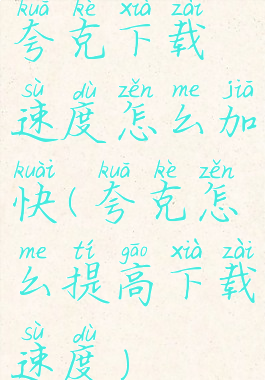 kuā kè xià zài
夸克下载
sù dù zěn me jiā
速度怎么加
kuài kuā kè zěn
快(夸克怎
me tí gāo xià zài
么提高下载
sù dù
速度)